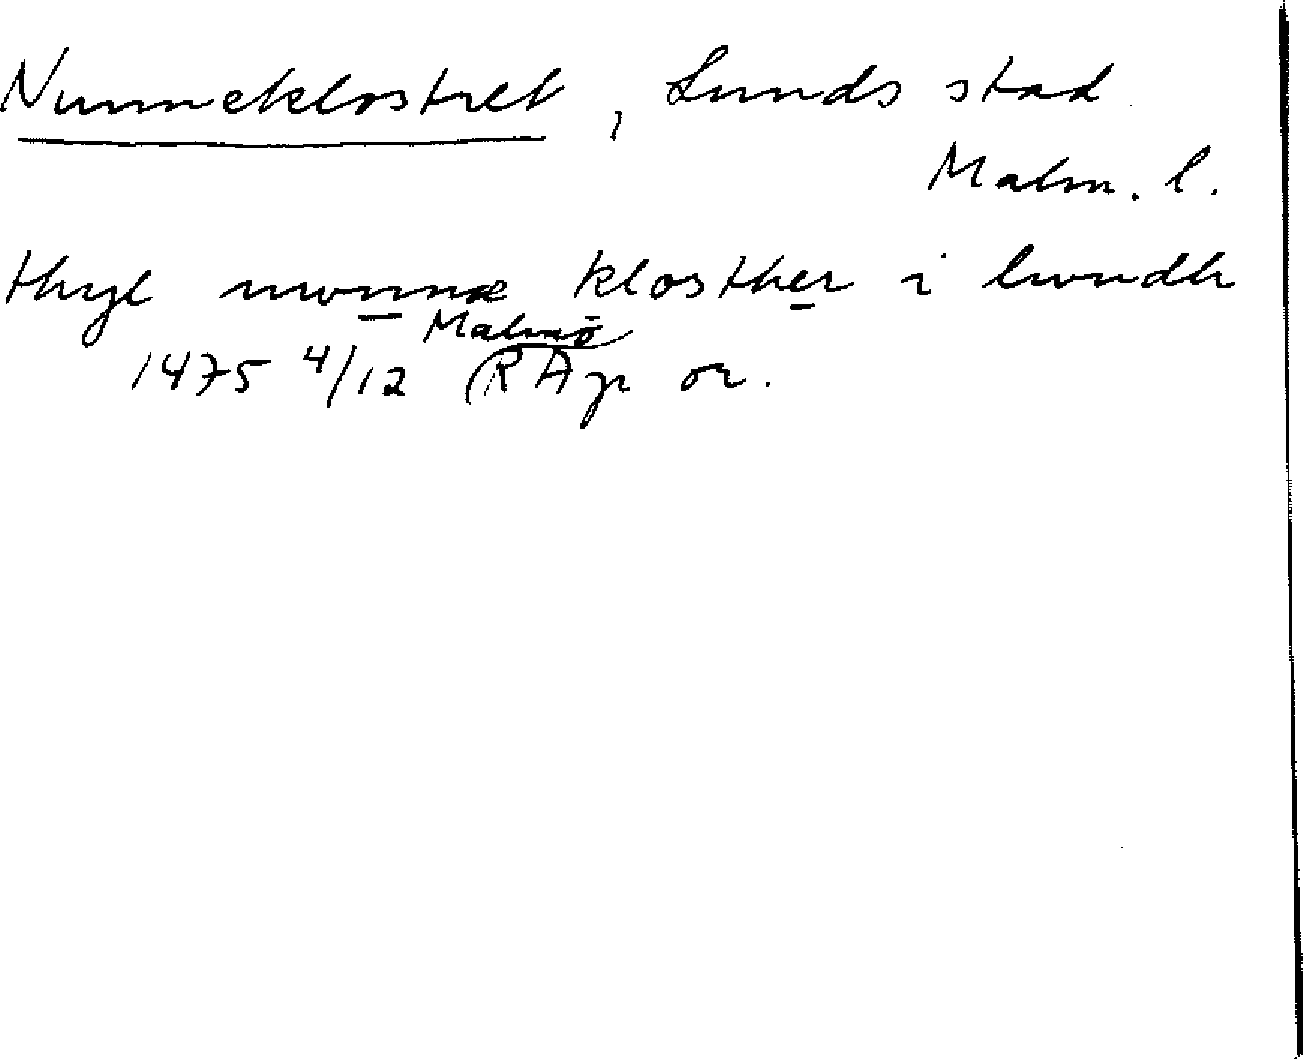 Nunneklostret, Lunds stad
Malm. l.
thyl nwnnæ klosther i lwndh
Malmö
1475 4/12 RAp or.